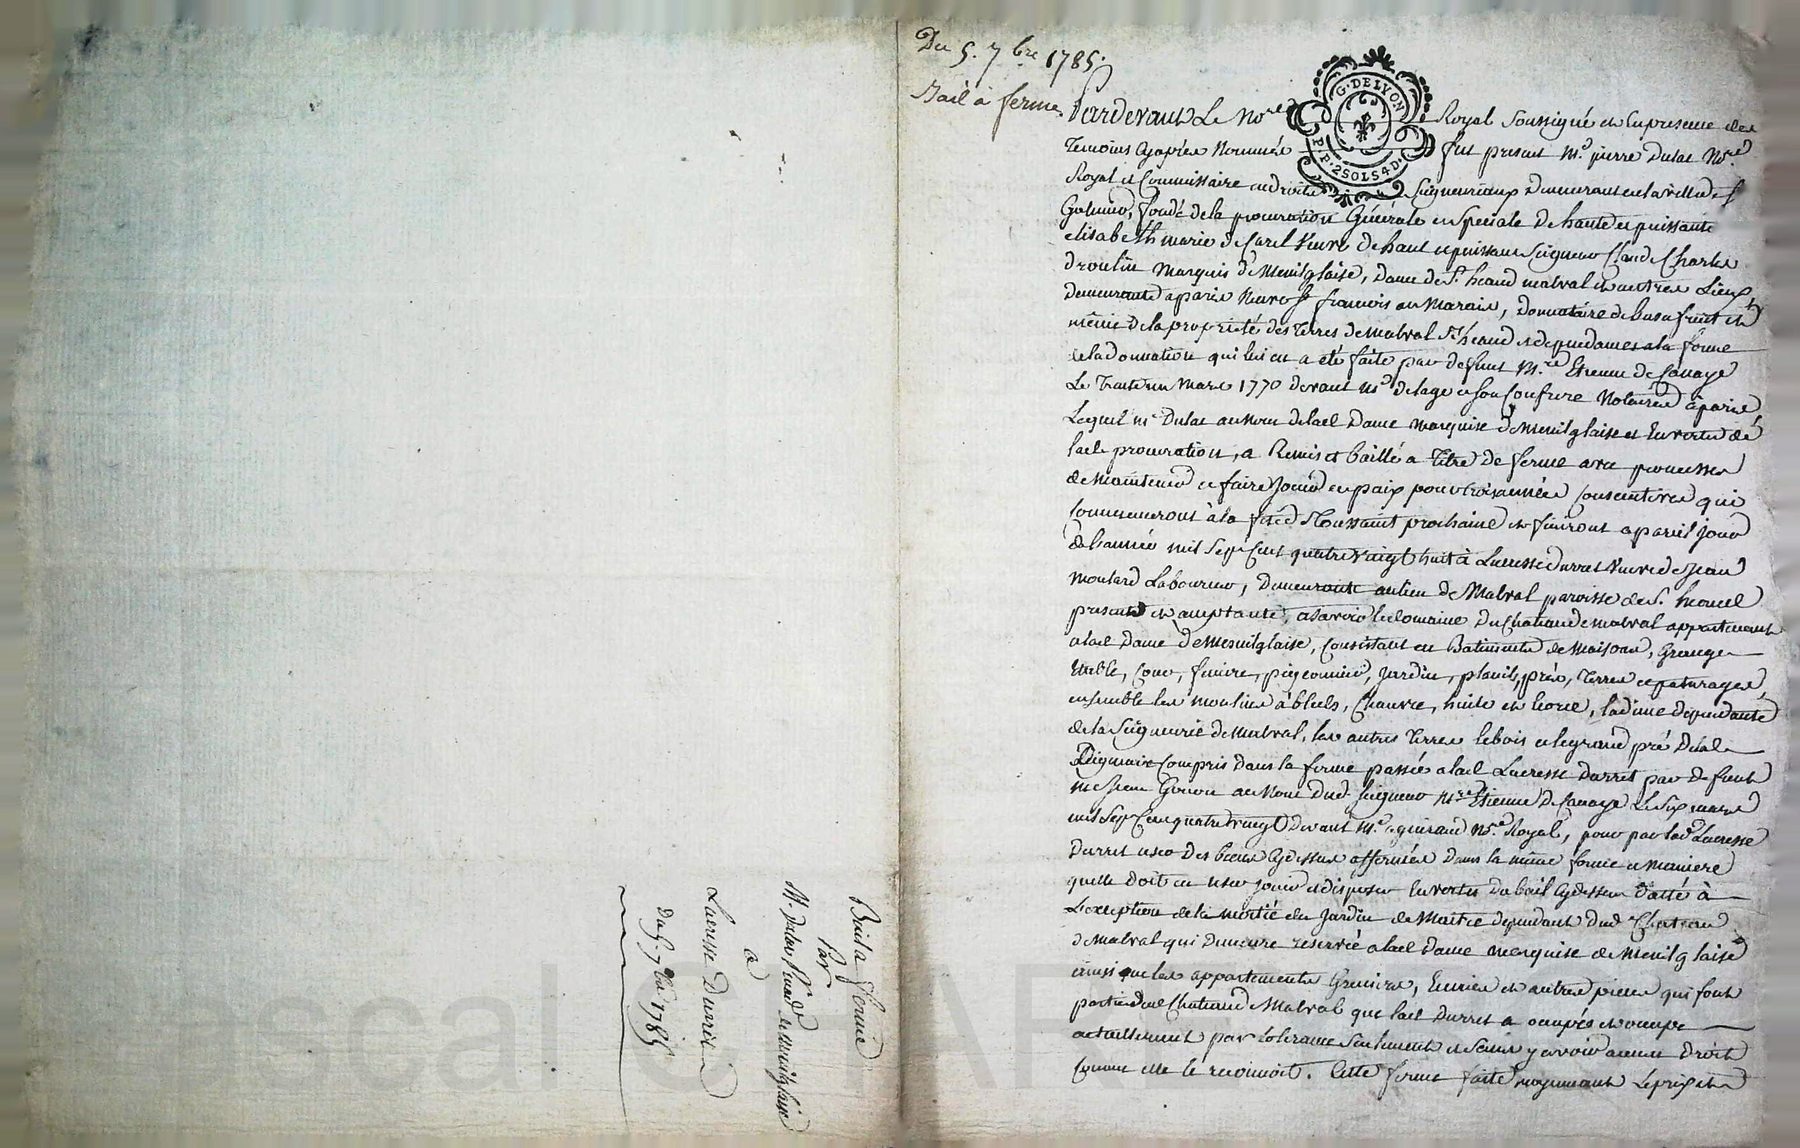 Du 5. 7bre 1785.
Bail à ferme
G. DE LYON
P.P. 2SOLS4D.
Pardevant Le No.re Royal Soussigné et En presence des
Temoins Cyaprés Nommés fut present M.e pierre Dulac No.re
Royal et Commissaire en droits Seigneuriaux Demeurant en la ville de S.t
Galmier, fondé de la procuration Générale et Speciale De haute et puissante
elisabeth marie de Carel Veuve De haut et puissant Seigneur Claude Charles
Droulin Marquis de Menilglaise, Dame de S.t heand malval et autres Lieux
Demeurante a paris Neuve S.t francois au Marais, Donnataire de lusufruit et
même de la propriété des Terres de Malval S.t héand et dependances a la forme
de la Donnation qui lui en a été faite par defunt M.re Etienne de Canaye
Le Trente un Mars 1770 devant M.e delage et Son Confrere Notaires à paris
Lequel m.e Dulac au Nom de lad. Dame marquise de Menilglaise et En vertu de
lad. procuration, a Remis et baillé a Titre de ferme avec promesses
de Maintenir et faire Jouir en paix pour trois années Consecutives qui
Commenceront à la fête de Toussaint prochaine et finiront a pareil jour
de l'année mil Sept Cent quatre vaingt huit à Lucresse Durret Veuve de Jean
moulard Laboureur, Demeurante au lieu de Malval paroisse de S.t heand
presente et acceptante, a Savoir le domaine Du Chateau de malval appartenant
a lad. Dame de Mesnilglaise, Consistant en Batiments de Maison, Grange
Etable, Cour, Suivre, pigeonnier, jardin, prés, Terres et paturages,
ensemble les moulins à bleds, Chanvre, huile et Ecorce, la dime dependante
de la Seigneurie de Malval, les autres Terres le bois et le grand pré Du
Compris Dans la ferme passée a lad. Lucresse Durret par De funt
M.e Jean au Nom Dud. Seigneur M.re Etienne De Canaye Le Six mars
mil Sept Cent quatre vingt Devant M.e No.re Royal, pour par lad. Lucresse
Durret user Des biens Cydessus affermés Dans la même forme et Maniere
quelle Doit en user jouir et disposer En vertu Du bail Cydessus Datté à
L'exception de la moitié du jardin de Maitre dependant Dud. Chateau
de Malval qui Demeure reservée a lad. Dame marquise de Menilglaise
ainsi que les appartements Greniers, Ecuries et autres pieces qui font
partie dud. Chateau de Malval que lad. Durret a occupés et occupe
actuellement par tolerance Seulement et Sans y avoir aucun Droit
Comme elle le reconnoit. Cette ferme faite moyennant Le prix et
Bail a ferme
Par
M. Dulac fondé de menilglaise
a
Lucresse Durret
du 5. 7bre 1785